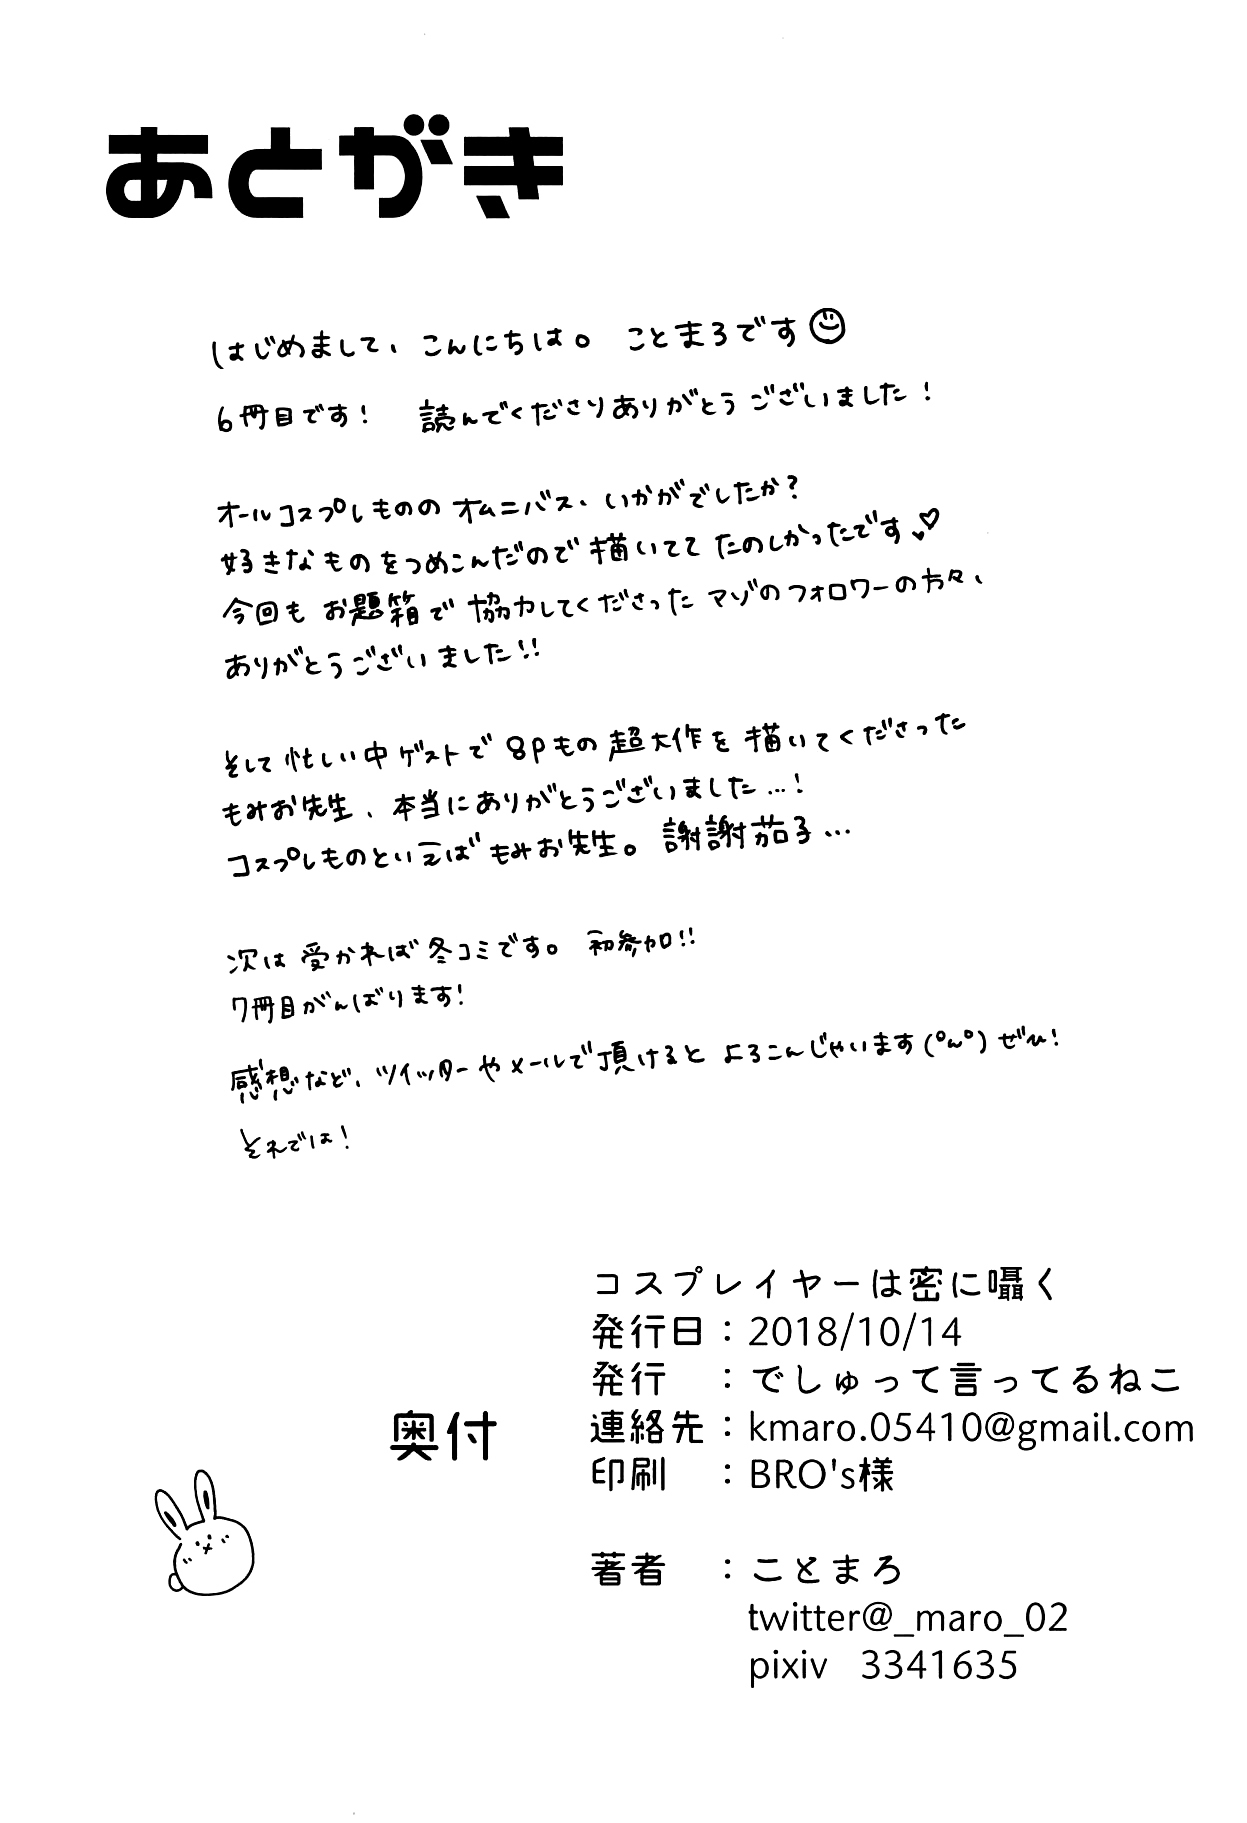 あとがき
はじめまして、こんにちは。 ことまろです
6冊目です! 読んでくださりありがとうございました!
オールコスプレもののオムニバス、いかがでしたか?
好きなものをつめこんだので描いててたのしかったです♡
今回もお題箱で協力してくださったマゾのフォロワーの方々、
ありがとうございました!!
そして忙しい中ゲストで8pもの超大作を描いてくださった
もみお先生、本当にありがとうございました…!
コスプレものといえばもみお先生。謝謝茄子…
次は受かれば冬コミです。 初参加!!
7冊目がんばります!
感想など、ツイッターやメールで頂けるとよろこんじゃいます(°ω°)ぜひ!
それでは!
コスプレイヤーは密に囁く
発行日:2018/10/14
発行 :でしゅって言ってるねこ
奥付
連絡先:kmaro.05410@gmail.com
印刷 :BRO's様
著者 :ことまろ
twitter@_maro_02
pixiv 3341635